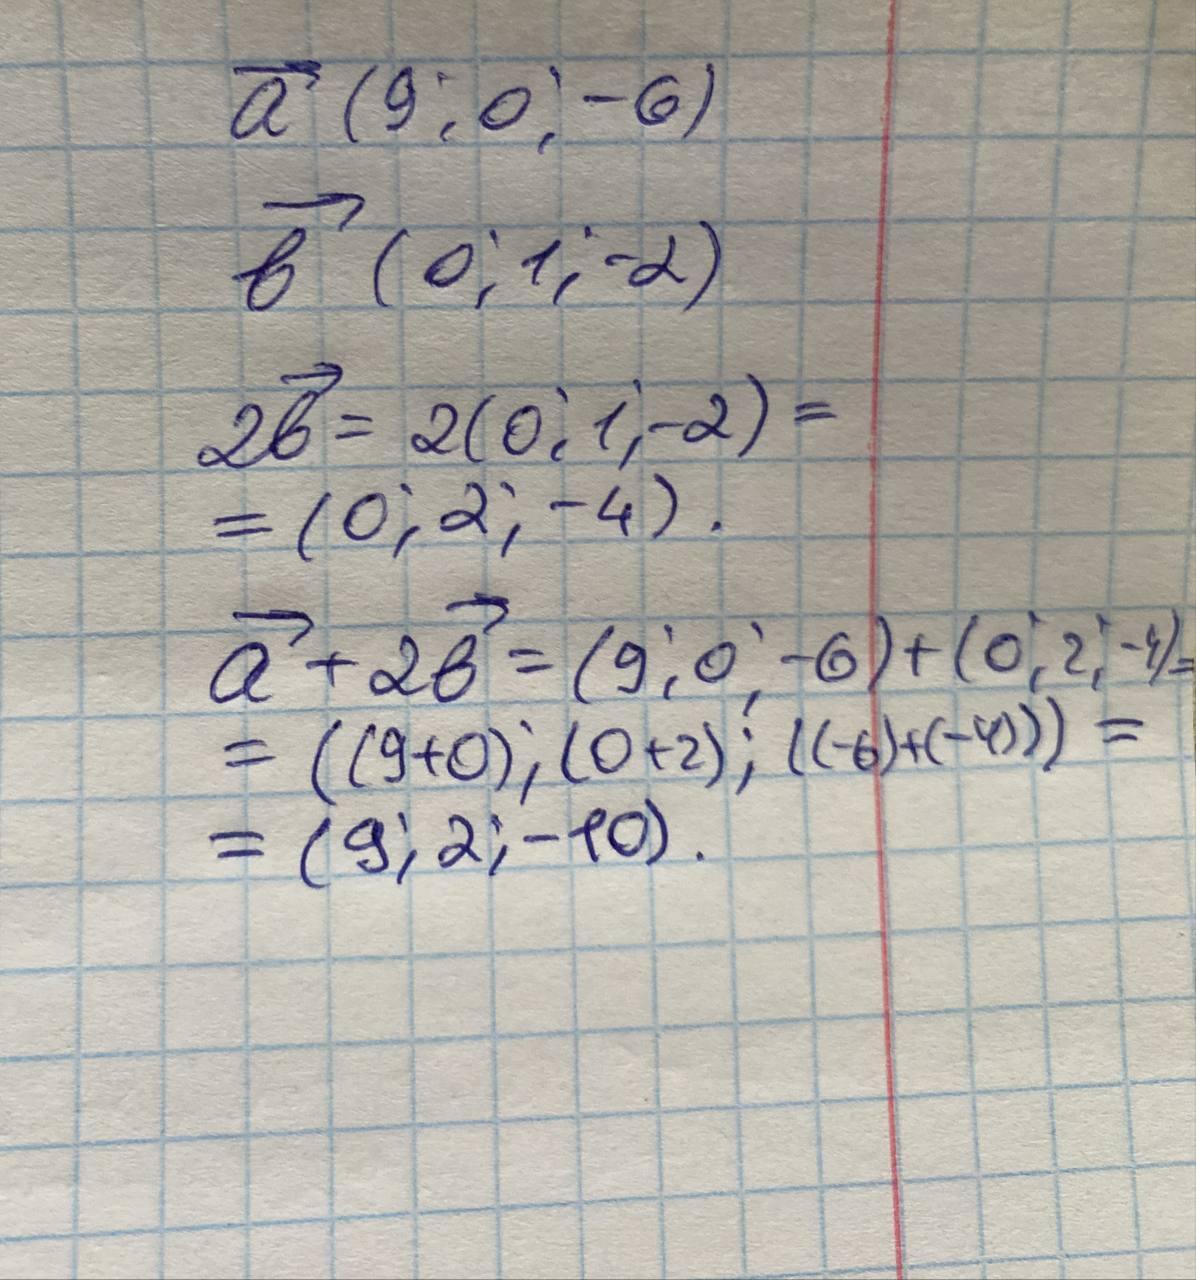 a⃗ (9; 0; -6)
b⃗ (0; 1; -2)
2b⃗ = 2(0; 1; -2) =
= (0; 2; -4).
a⃗ + 2b⃗ = (9; 0; -6) + (0; 2; -4) =
= ((9+0); (0+2); ((-6)+(-4))) =
= (9; 2; -10).